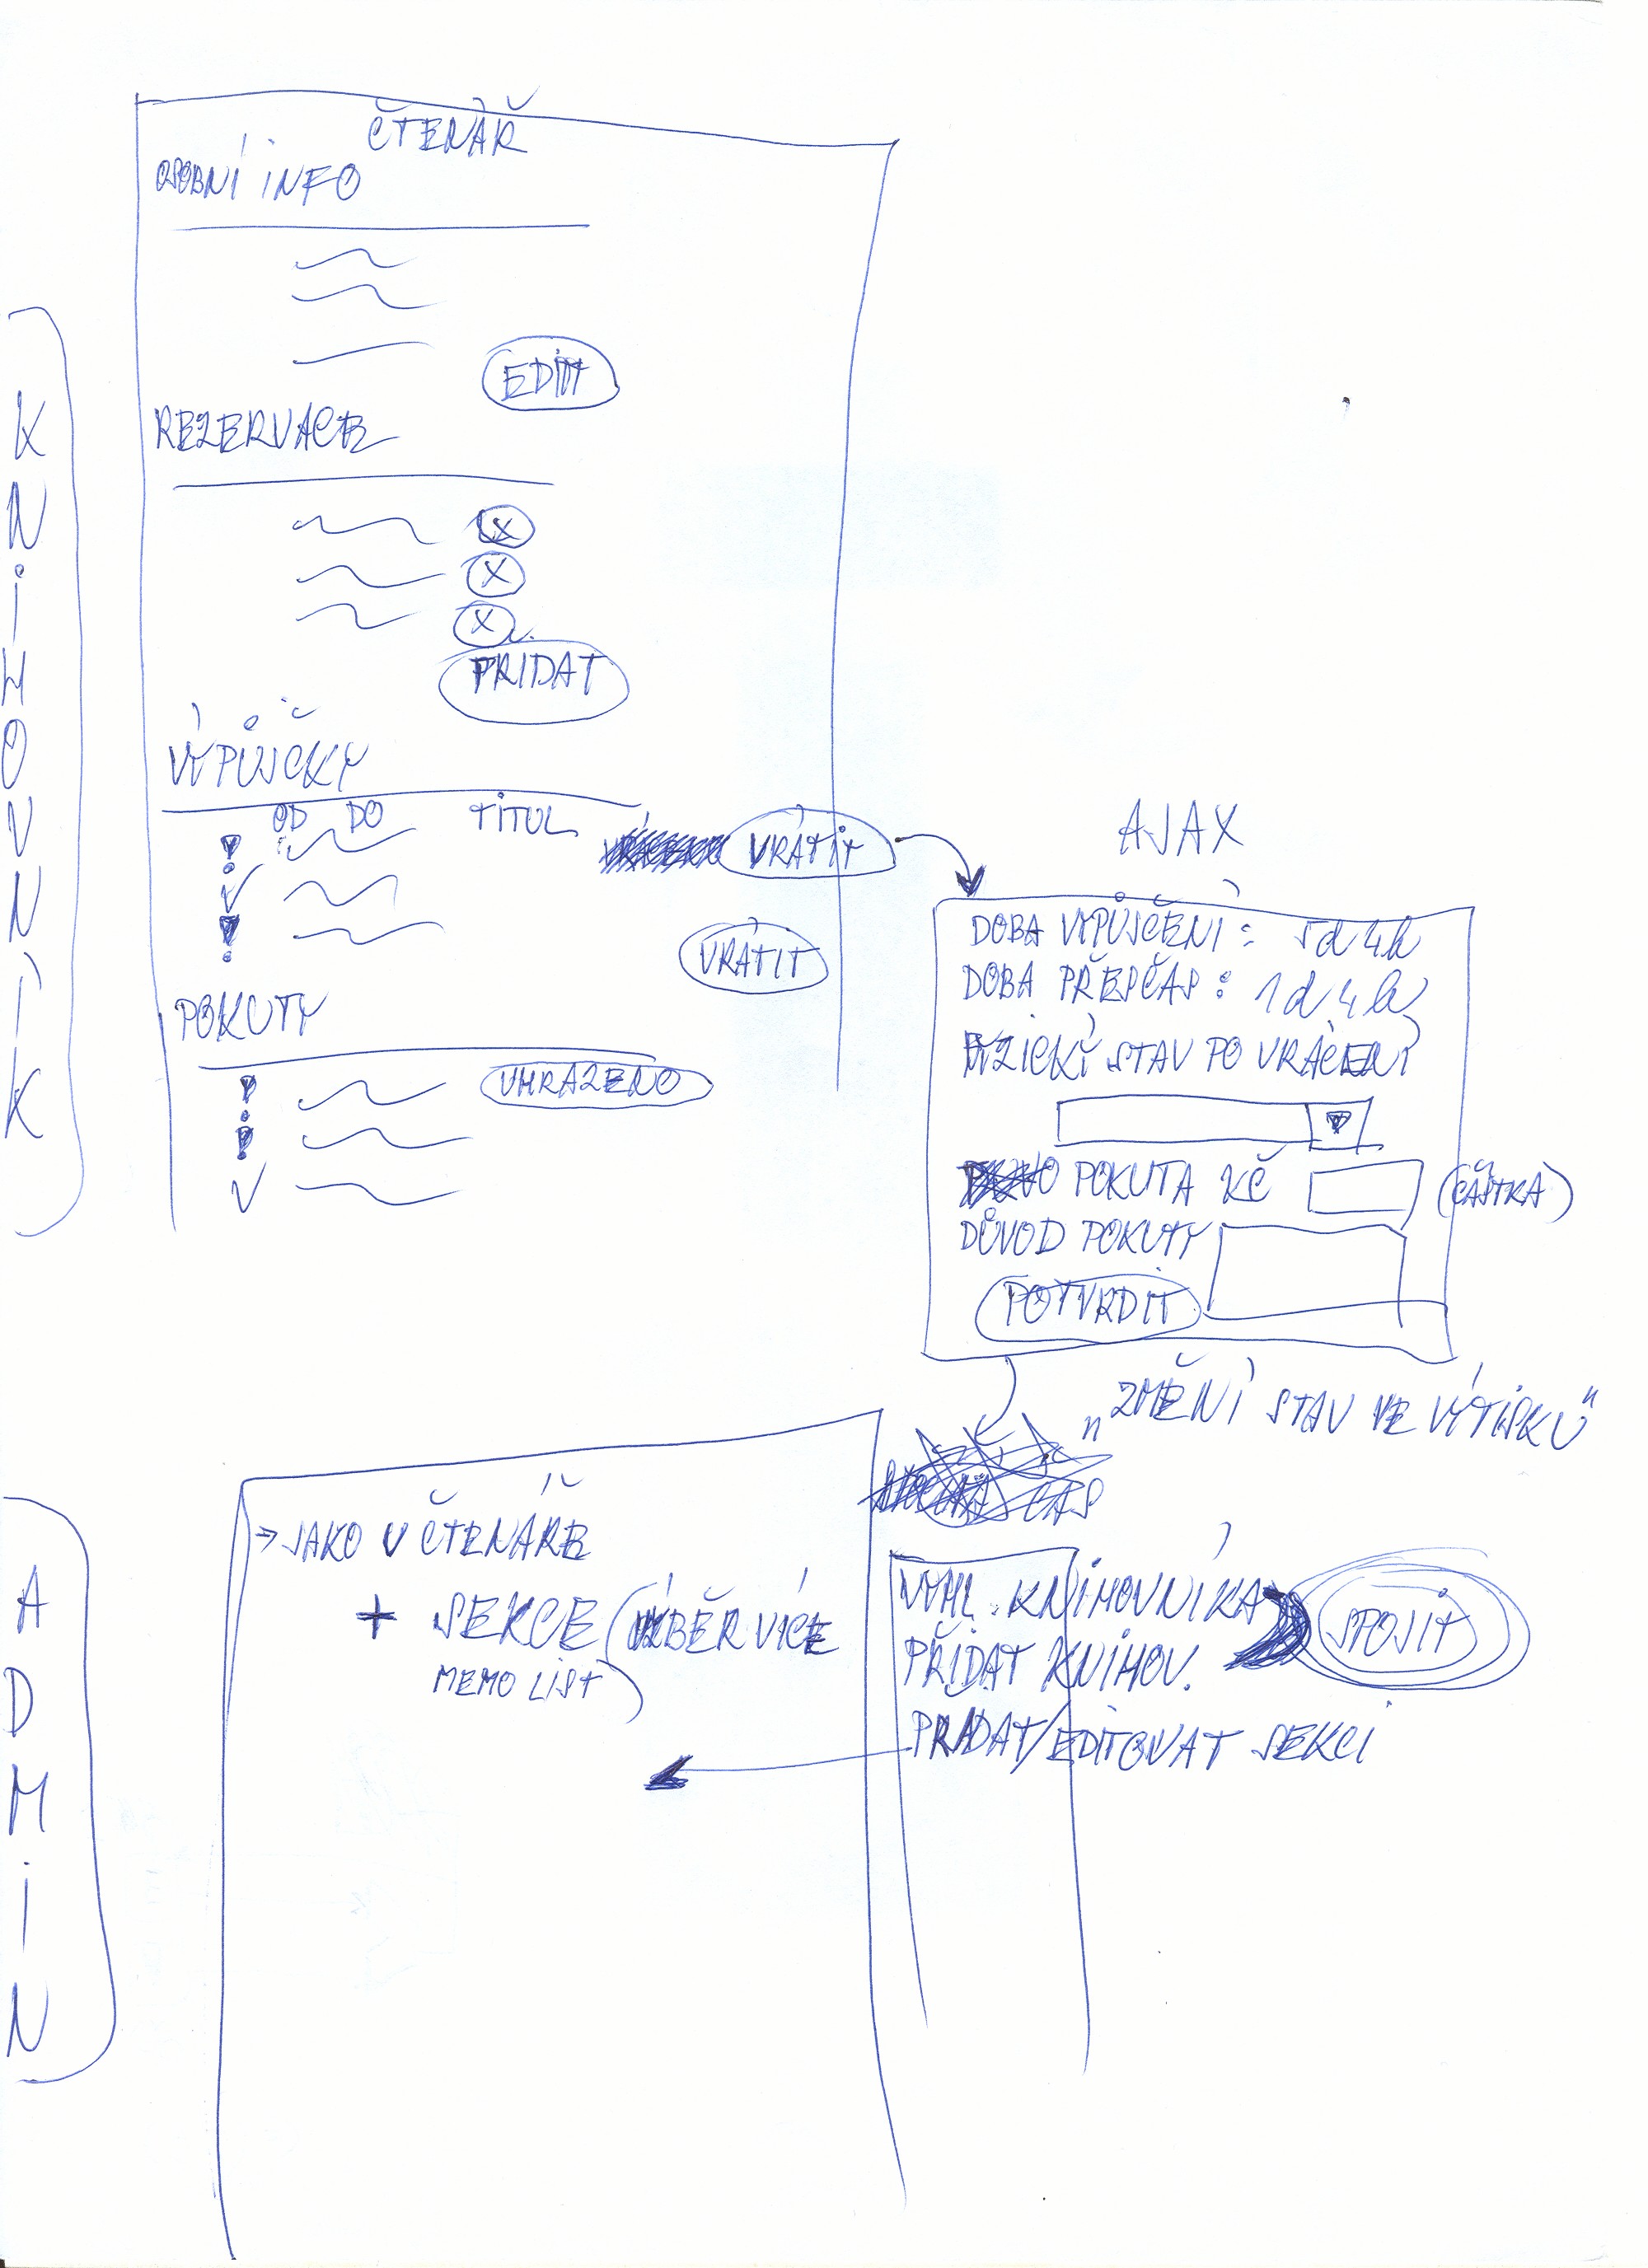 ČTENÁŘ
OSOBNÍ INFO
EDIT
REZERVACE
X
X
X
PŘIDAT
VÝPŮJČKY
OD DO TITUL
VRÁTIT
VRÁTIT
POKUTY
UHRAZENO
KNIHOVNÍK
AJAX
DOBA VYPŮJČENÍ: 5d 4h
DOBA PŘESČAS: 1d 4h
FYZICKÝ STAV PO VRÁCENÍ
POKUTA KČ (ČÁSTKA)
DŮVOD POKUTY
POTVRDIT
„ZMĚNÍ STAV VE VÝTISKU"
ČAS
ADMIN
→ JAKO U ČTENÁŘE
+ SEKCE (VÝBĚR VÍCE
MEMO LIST)
VYHL. KNIHOVNÍKA
PŘIDAT KNIHOV.
SPOJIT
PŘIDAT/EDITOVAT SEKCI